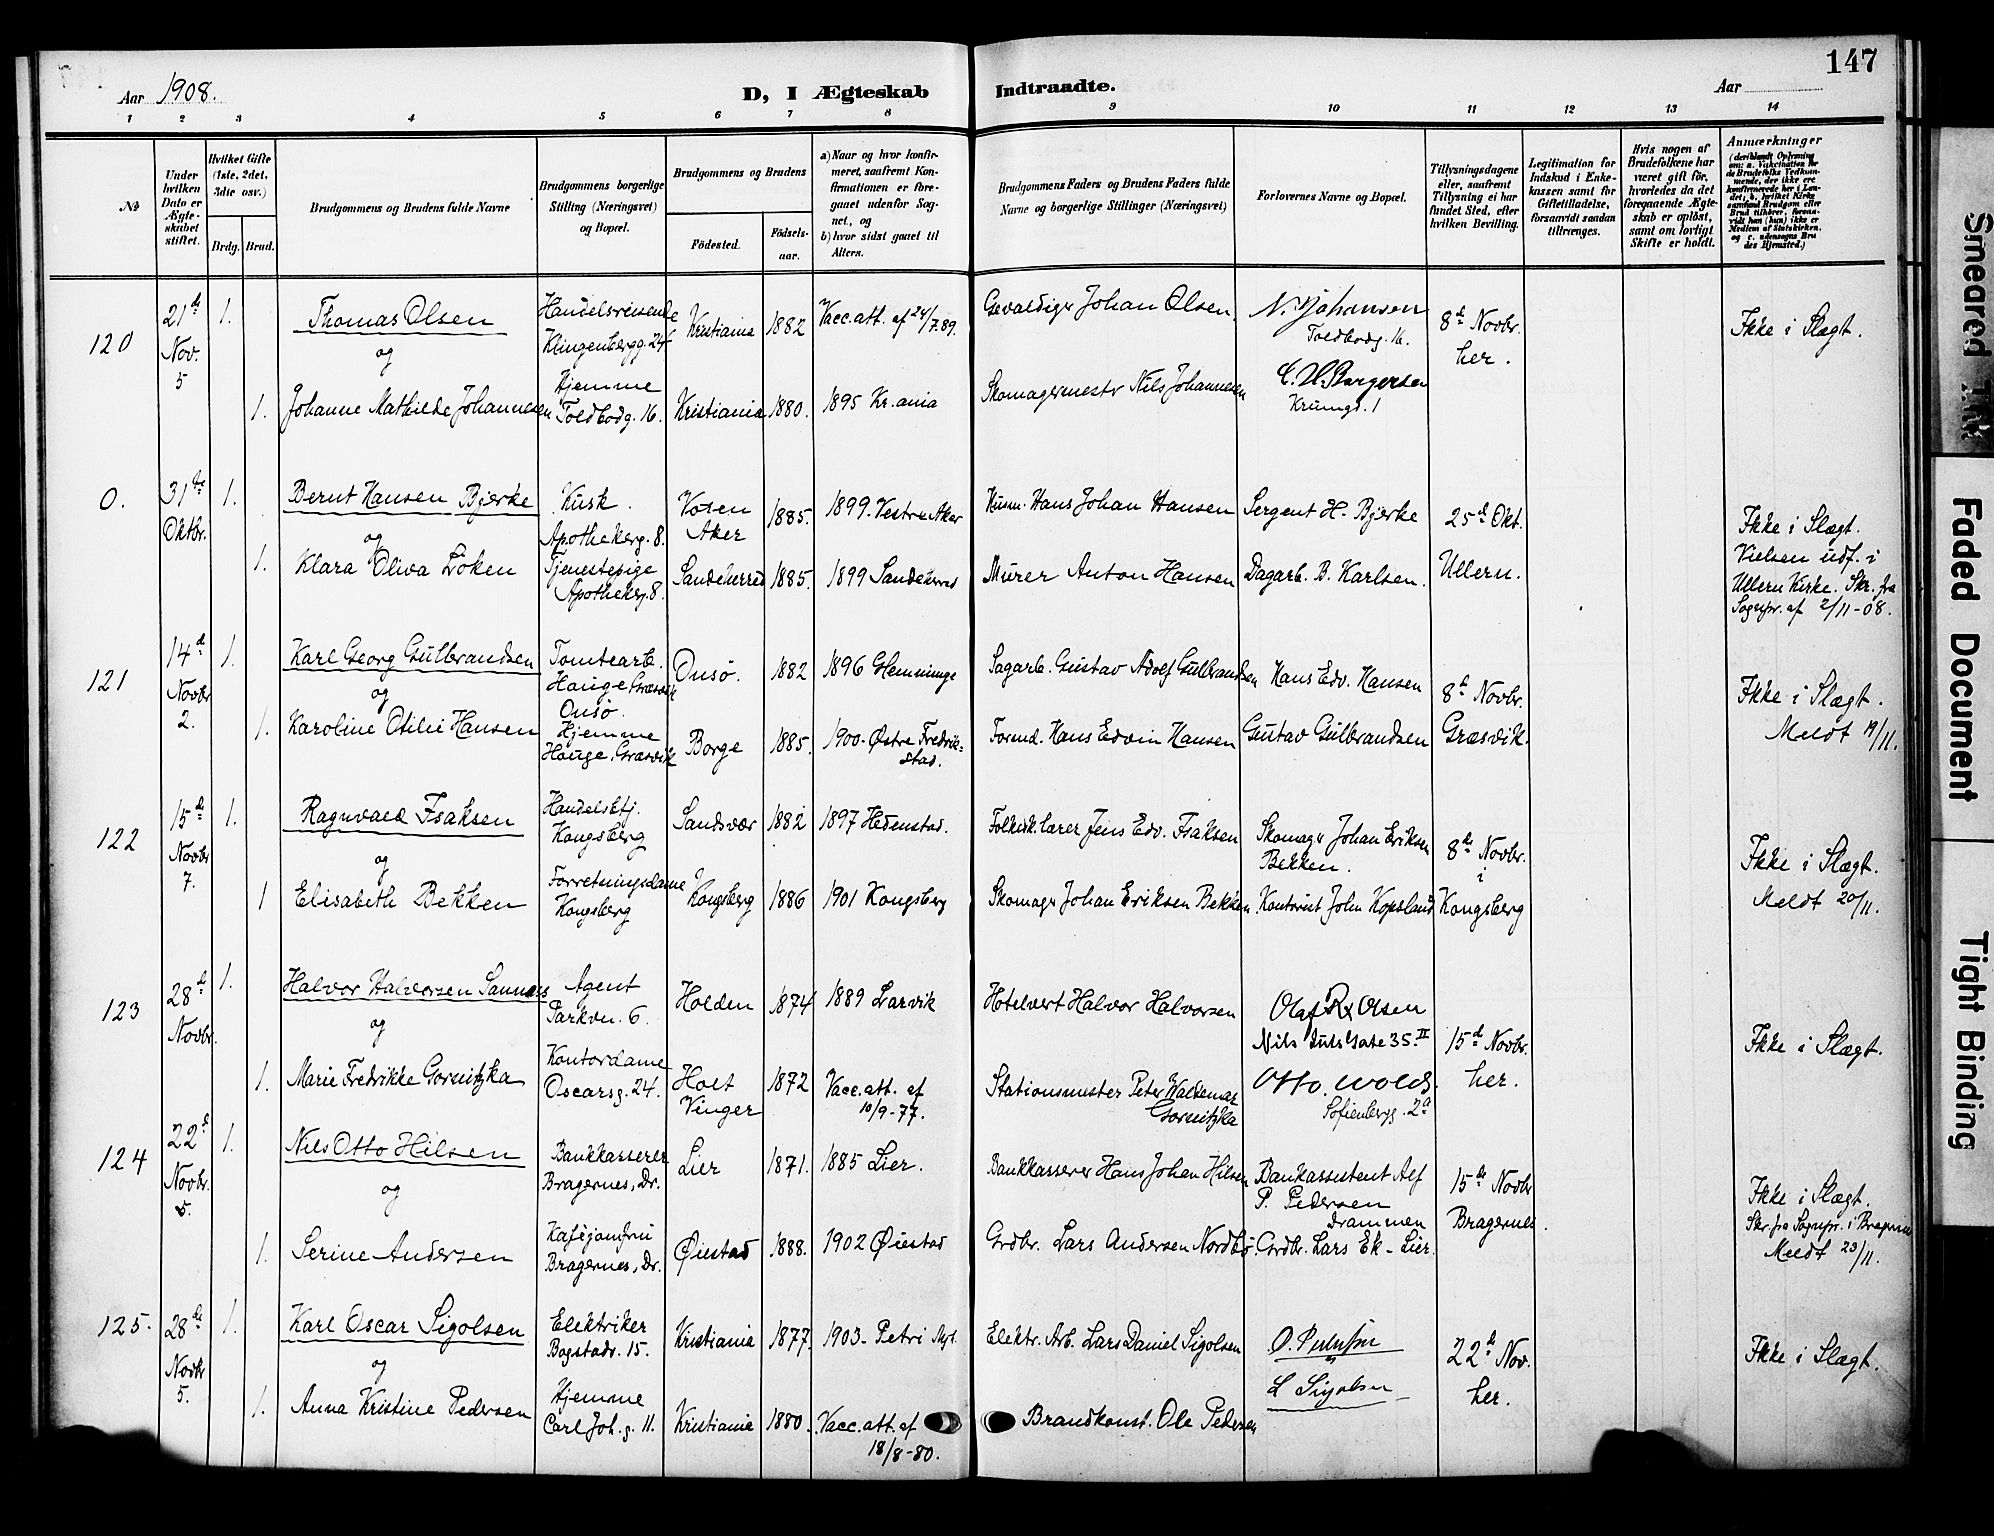 147
Aar 1908.
D, I Ægteskab Indtraadte.
Aar
1 2 3 4 5 6 7 8 9 10 11 12 13 14
№
Under hvilken Dato er Ægteskabet stiftet.
Hvilket Gifte (1ste, 2det, 3die osv.)
Brdg. Brud.
Brudgommens og Brudens fulde Navne
Brudgommens borgerlige Stilling (Næringsvei) og Bopæl.
Brudgommens og Brudens
Födested.
Födselsaar.
a) Naar og hvor konfirmeret, saafremt Konfirmationen er foregaaet udenfor Sognet, og
b) hvor sidst gaaet til Alters.
Brudgommens Faders og Brudens Faders fulde Navne og borgerlige Stillinger (Næringsvei)
Forlovernes Navne og Bopæl.
Tillysningsdagene eller, saafremt Tillysning ei har fundet Sted, efter hvilken Bevilling.
Legitimation for Indskud i Enkekassen samt for Giftetilladelse, forsaavidt saadan tiltrænges.
Hvis nogen af Brudefolkene har været gift för, hvorledes da det foregaaende Ægteskab er oplöst, samt om lovligt Skifte er holdt.
Anmærkninger
(deriblandt Oplysning om: a. Vakcination for de Brudefolks Vedkommende, der ikke ere konfirmerede her i Landet; b. hvilket Kirkesamfund Brudgom eller Brud tilhörer, forsaavidt han (hun) ikke er Medlem af Statskirken, og c. udensogns Brudes Hjemsted.)
120
21de Nov. 5
1.
Thomas Olsen
og
Handelsreisende
Klingenbergg. 24
Kristiania
1882
Vacc. att. af 24/7.89.
Gevaldiger Johan Olsen.
N. Johansen
Toldbodg. 16.
8de Novbr.
her.
Ikke i Slægt.
1.
Johanne Mathilde Johannesen
Hjemme
Toldbodg. 16.
Kristiania
1880.
1895 Kr.ania
Skomagermestr Nils Johannesen
C. H. Borgersen
Krumgd. 1
0.
31te Oktbr.
1.
Bernt Hansen Bjerke
og
Kusk.
Apothekerg. 8.
Aker
1885.
1899. Vestre Aker
Husm. Hans Johan Hansen
Sergent H. Bjerke
25de Okt.
Ikke i Slægt.
1.
Klara Oliva Löken
Tjenestepige
Apothekerg. 8.
Sandeherred
1885.
1899 Sandeherred
Murer Anton Hansen
Dagarb. B. Karlsen.
Ullern.
Vielsen udf. i
Ullern Kirke. Skr. fra
Sogepr. af 2/11-08.
121
14de Novbr 2.
1.
Karl Georg Gulbrandsen
og
Tomtearb.
Hauge Græsvik
Onsö.
Onsö.
1882
1896 Glemminge
Sagarb. Gustav Adolf Gulbrandsen
Hans Edv. Hansen
8de Novbr.
Ikke i Slægt.
1.
Karoline Otilie Hansen
Hjemme
Hauge, Græsvik
Borge
1885.
1900. Østre Fredrikstad.
Formd. Hans Edvin Hansen
Gustav Gulbrandsen
Græsvik.
Meldt 19/11.
122
15de Novbr 7.
1.
Ragnvald Isaksen
og
Handelsbtj.
Kongsberg
Sandsvær
1882
1897 Hedenstad.
Folkesk.lærer Jens Edv. Isaksen
Skomager Johan Eriksen
Bekken.
8de Novbr.
i
Ikke i Slægt.
1
Elisabeth Bekken
Forretningsdame
Kongsberg
Kongsberg
1886
1901 Kongsberg
Skomager Johan Eriksen Bekken
Kontorist John Kopsland
Kongsberg
Meldt 20/11.
123
28de Novbr.
1.
Halvor Halvorsen Sannæs
og
Agent
Parkvn. 6.
Holden
1874
1889 Larvik
Hotelvært Halvor Halvorsen
Olaf Olsen
Nils Juls Gate 35. II
15de Novbr.
Ikke i Slægt.
1.
Marie Fredrikke Gornitzka
Kontordame
Oscarsg. 24.
Holt
Vinger
1872
Vacc. att. af
10/9-77.
Stationsmester Peter Waldemar
Gornitzka
Otto Wold
Sofienbergg. 2a
her.
124
22de Novbr. 5.
1.
Nils Otto Hilsen
og
Bankkasserer
Bragernes, Dr.
Lier
1871.
1885 Lier.
Bankkasserer Hans Johan Hilsen
Bankassistent Alf
P. Pedersen
Drammen
15de Novbr
Bragernes.
Ikke i Slægt.
Skr. fra Sognepr. i Bragernes
1.
Serine Andersen
Kaféjomfru
Bragernes, Dr.
Øiestad
1888.
1902 Øiestad
Grdbr. Lars Andersen Nordbö
Grdbr. Lars Ek - Lier.
Meldt 23/11.
125.
28de Novbr 5.
1.
Karl Oscar Sigolsen
og
Elektriker
Bogstadv. 15.
Kristiania
1877.
1903. Petri
Elektr. Arb. Lars Daniel Sigolsen
22de Nov.
Ikke i Slægt.
1.
Anna Kristine Pedersen
Hjemme
Carl Joh. g. 11.
Kristiania
1880.
Vacc. att. af
18/8-80.
Brandkonst. Ole Pedersen
L Sigolsen
her.
Smeared Ink
Faded Document
Tight Binding